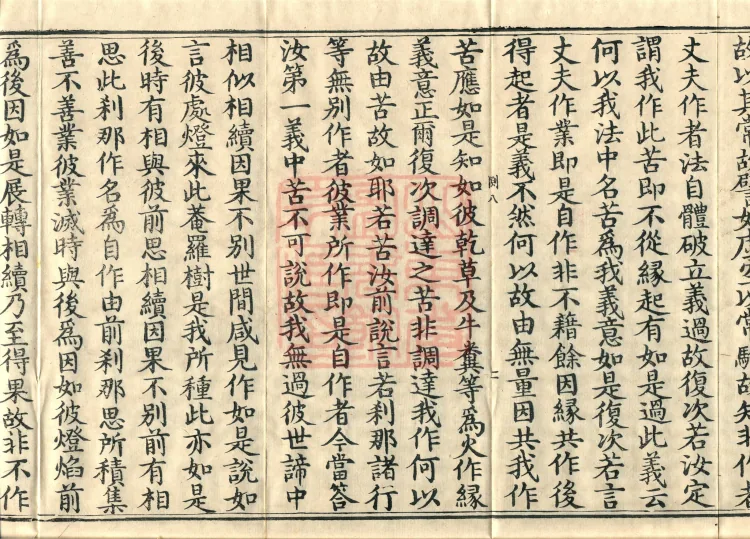 故以其常故譬如虛空以常驗故知非作者
丈夫作者法自體破立義過故復次若汝定
謂我作此苦即不從緣起有如是過此義云
何以我法中名苦為我義意如是復次若言
丈夫作業即是自作非不藉餘因緣共作後
得起者是義不然何以故由無量因共我作
苦應如是知如彼乾草及牛糞等為火作緣
義意正爾復次調達之苦非調達我作何以
故由苦故如耶若苦汝前說言若剎那諸行
等無別作者彼業所作即是自作者今當答
汝第一義中苦不可說故我無過彼世諦中
相似相續因果不別世間咸見作如是說如
言彼處燈來此菴羅樹是我所種此亦如是
後時有相與彼前思相續因果不別前有相
思此剎那作名為自作由前剎那思所積集
善不善業彼業滅時與後為因如彼燈焰前
為後因如是展轉相續乃至得果故非不作